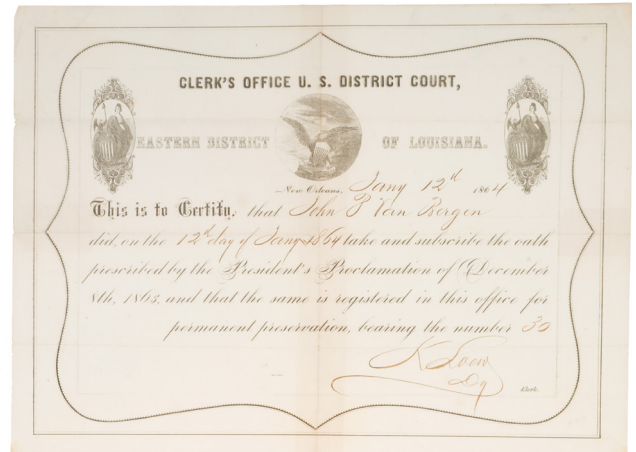 CLERK'S OFFICE U. S. DISTRICT COURT,
EASTERN DISTRICT OF LOUISIANA.
New Orleans, Jany 12d 1864
This is to Certify, that John P Van Bergen
did, on the 12th day of Jany 1864 take and subscribe the oath
prescribed by the President's Proclamation of December
8th, 1863, and that the same is registered in this office for
permanent preservation, bearing the number 30
Dy Clerk.